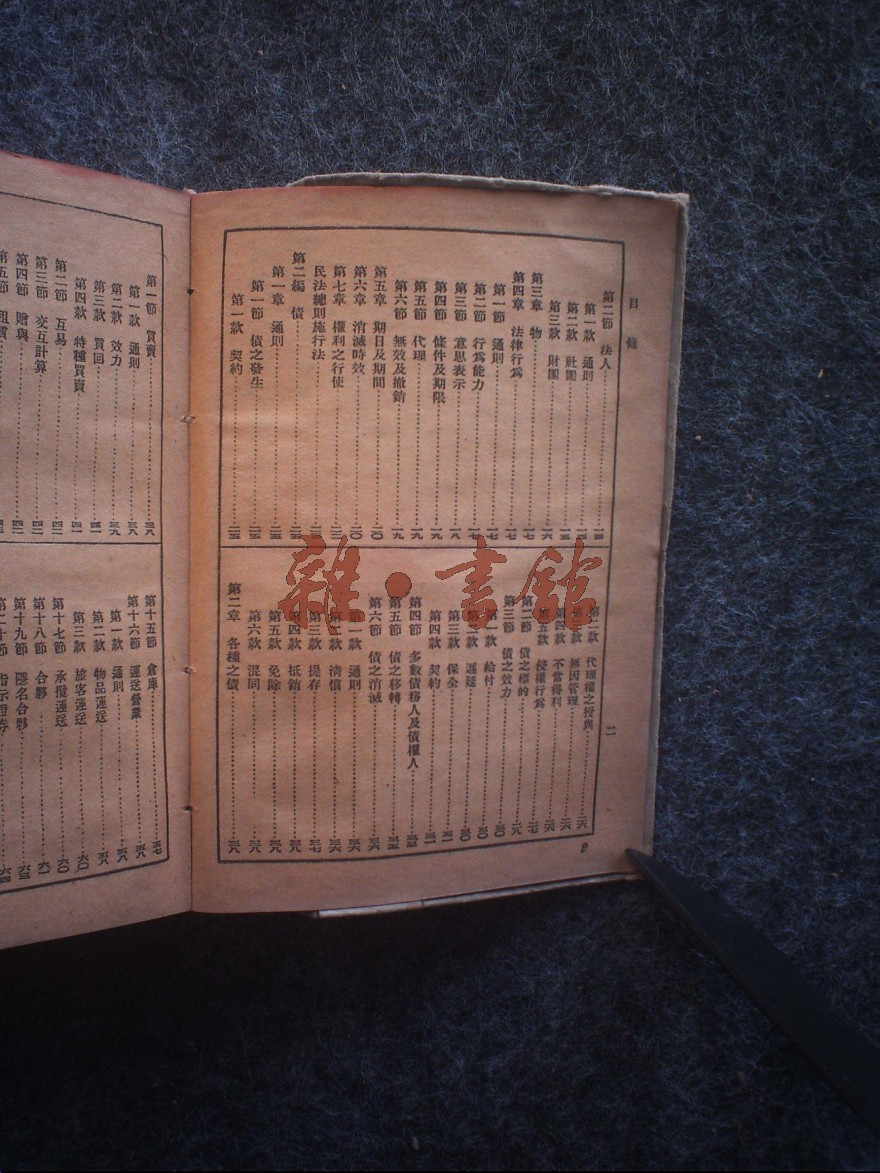 目錄
第二節 法人
第一款 通則
第二款 社團
第三款 財團
第三章 物
第四章 法律行爲
第一節 通則
第二節 行爲能力
第三節 意思表示
第四節 條件及期限
第五節 代理
第六節 無效及撤銷
第五章 期日及期間
第六章 消滅時效
第七章 權利之行使
民法總則施行法
第二編 債
第一章 通則
第一節 債之發生
第一款 契約
第二款 代理權之授與
第三款 無因管理
第四款 不當得利
第五款 侵權行爲
第二節 債之標的
第三節 債之效力
第一款 給付
第二款 遲延
第三款 保全
第四款 契約
第四節 多數債務人及債權人
第五節 債之移轉
第六節 債之消滅
第一款 通則
第二款 清償
第三款 提存
第四款 抵銷
第五款 免除
第六款 混同
第二章 各種之債
二
第一節 買賣
第一款 通則
第二款 效力
第三款 買回
第四款 特種買賣
第二節 互易
第三節 交互計算
第四節 贈與
第五節 租賃
第十五節 倉庫
第十六節 運送營業
第一款 通則
第二款 物品運送
第三款 旅客運送
第十七節 承攬運送
第十八節 合夥
第十九節 隱名合夥
第二十節 指示證券
雜·書館